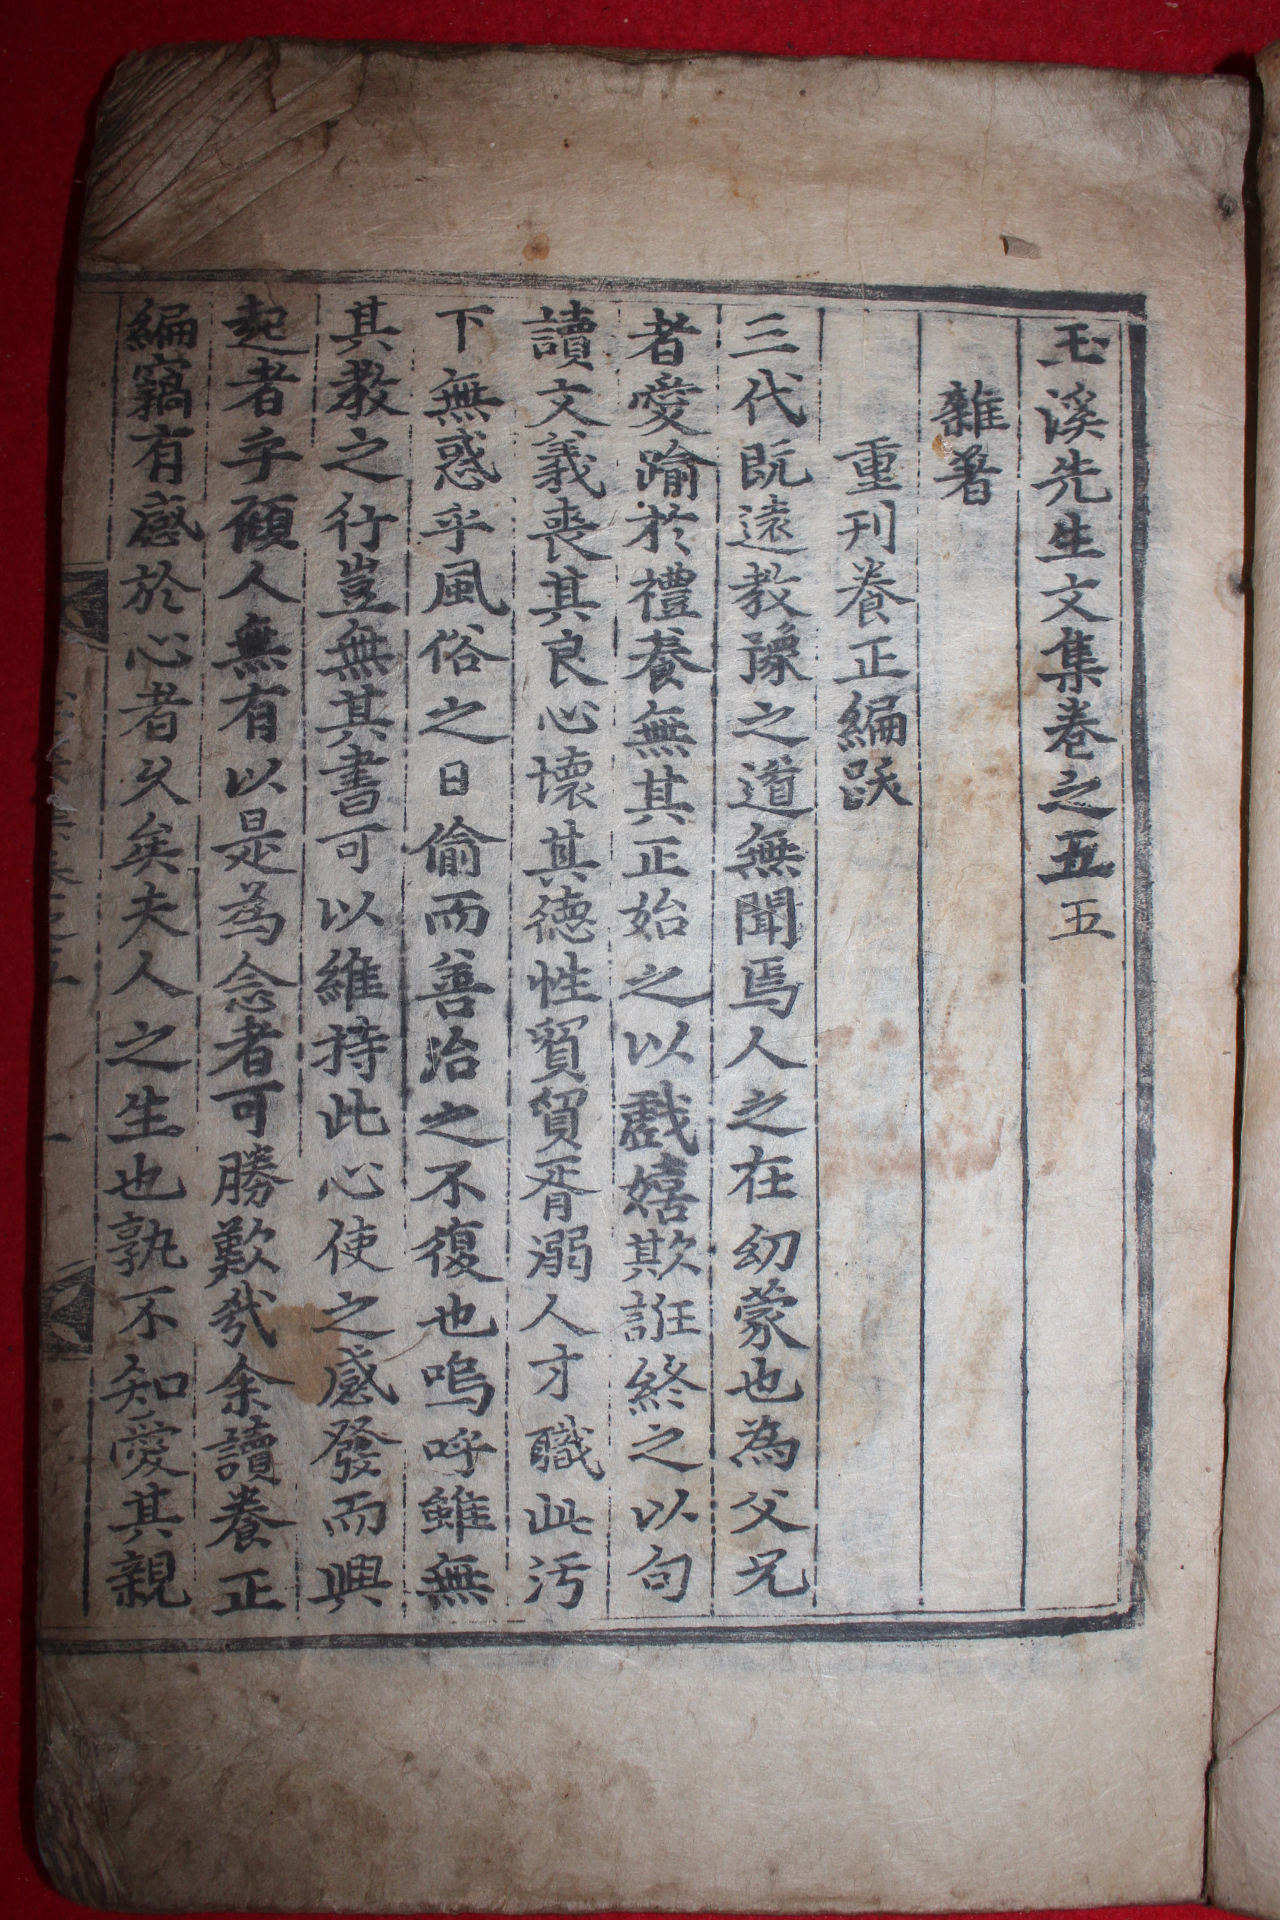 玉溪先生文集卷之五 五
雜著
重刊養正編跋
三代旣遠敎豫之道無聞焉人之在幼蒙也為父兄
者愛踰於禮養無其正始之以戱嬉欺誑終之以句
讀文義喪其良心壞其德性貿貿胥溺人才職此汚
下無惑乎風俗之日偷而善治之不復也嗚呼雖無
其敎之行豈無其書可以維持此心使之感發而興
起者乎顧人無有以是為念者可勝歎㢤余讀養正
編竊有感於心者久矣夫人之生也孰不知愛其親